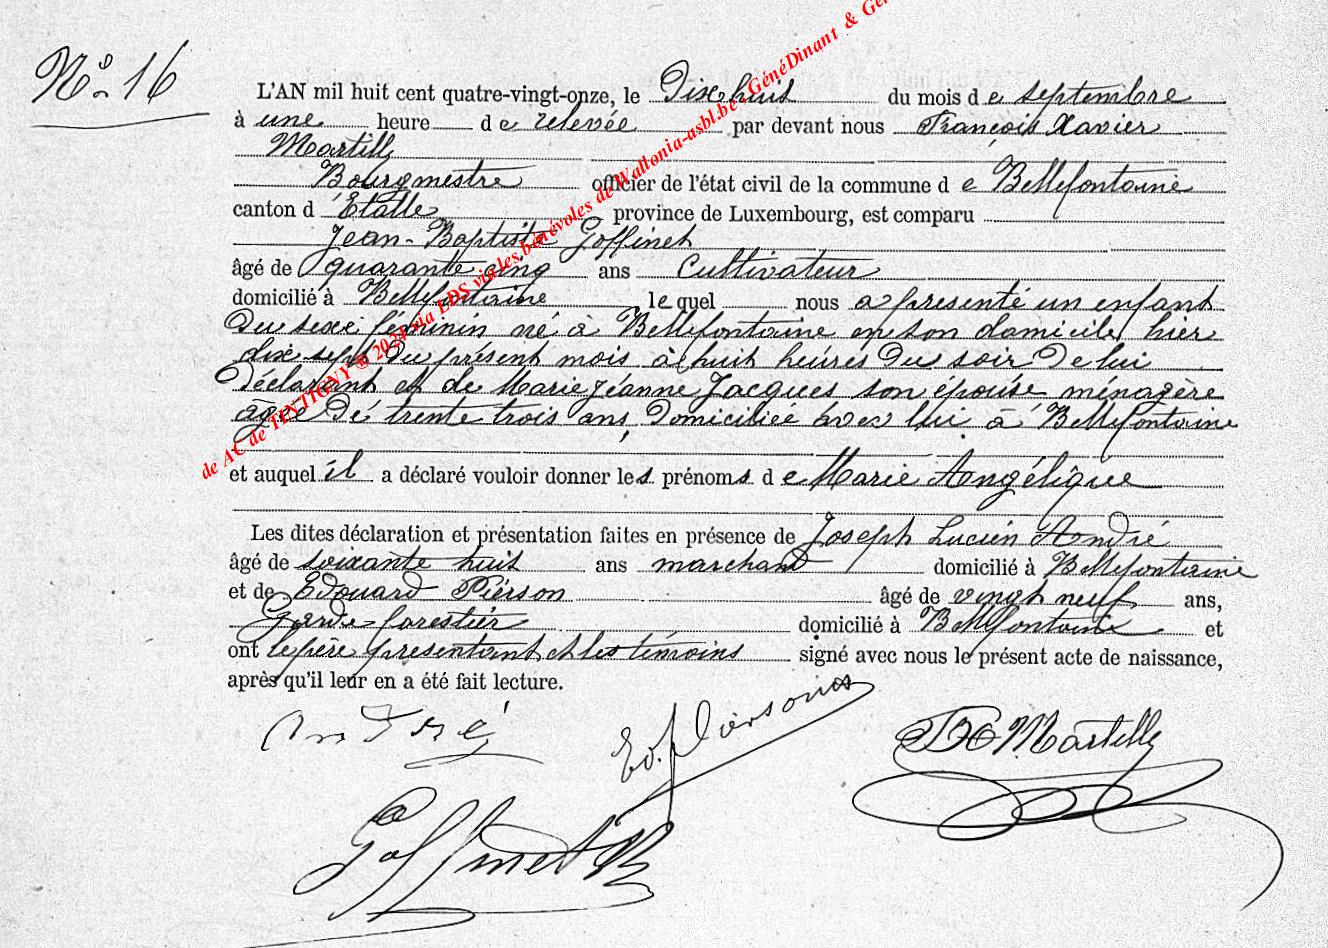 N° 16
L'AN mil huit cent quatre-vingt-onze, le Dix huit du mois de septembre
à une heure de relevée par devant nous François Xavier
Martilly
Bourgmestre officier de l'état civil de la commune de Bellefontaine
canton d'Étalle province de Luxembourg, est comparu
Jean-Baptiste Goffinet
âgé de quarante cinq ans Cultivateur
domicilié à Bellefontaine, le quel nous a présenté un enfant
Du sexe féminin né à Bellefontaine en son domicile, hier
dix sept du présent mois à huit heures Du soir De lui
Déclarant et de Marie Jeanne Jacques son épouse ménagère
âgée De trente trois ans, Domiciliée avec lui à Bellefontaine
et auquel il a déclaré vouloir donner les prénoms de Marie Angélique
Les dites déclaration et présentation faites en présence de Joseph Lucien André
âgé de soixante huit ans marchand domicilié à Bellefontaine
et de Edouard Piérson âgé de vingt neuf ans,
Garde forestier domicilié à Bellefontaine et
ont le père présentant et les témoins signé avec nous le présent acte de naissance,
après qu'il leur en a été fait lecture.
André
Ed. Pierson
Martilly
Goffinet
de AC de TINTIGNY © 2021 via EDS via les bénévoles de Wallonia-asbl.be - GénéDinant & Gé